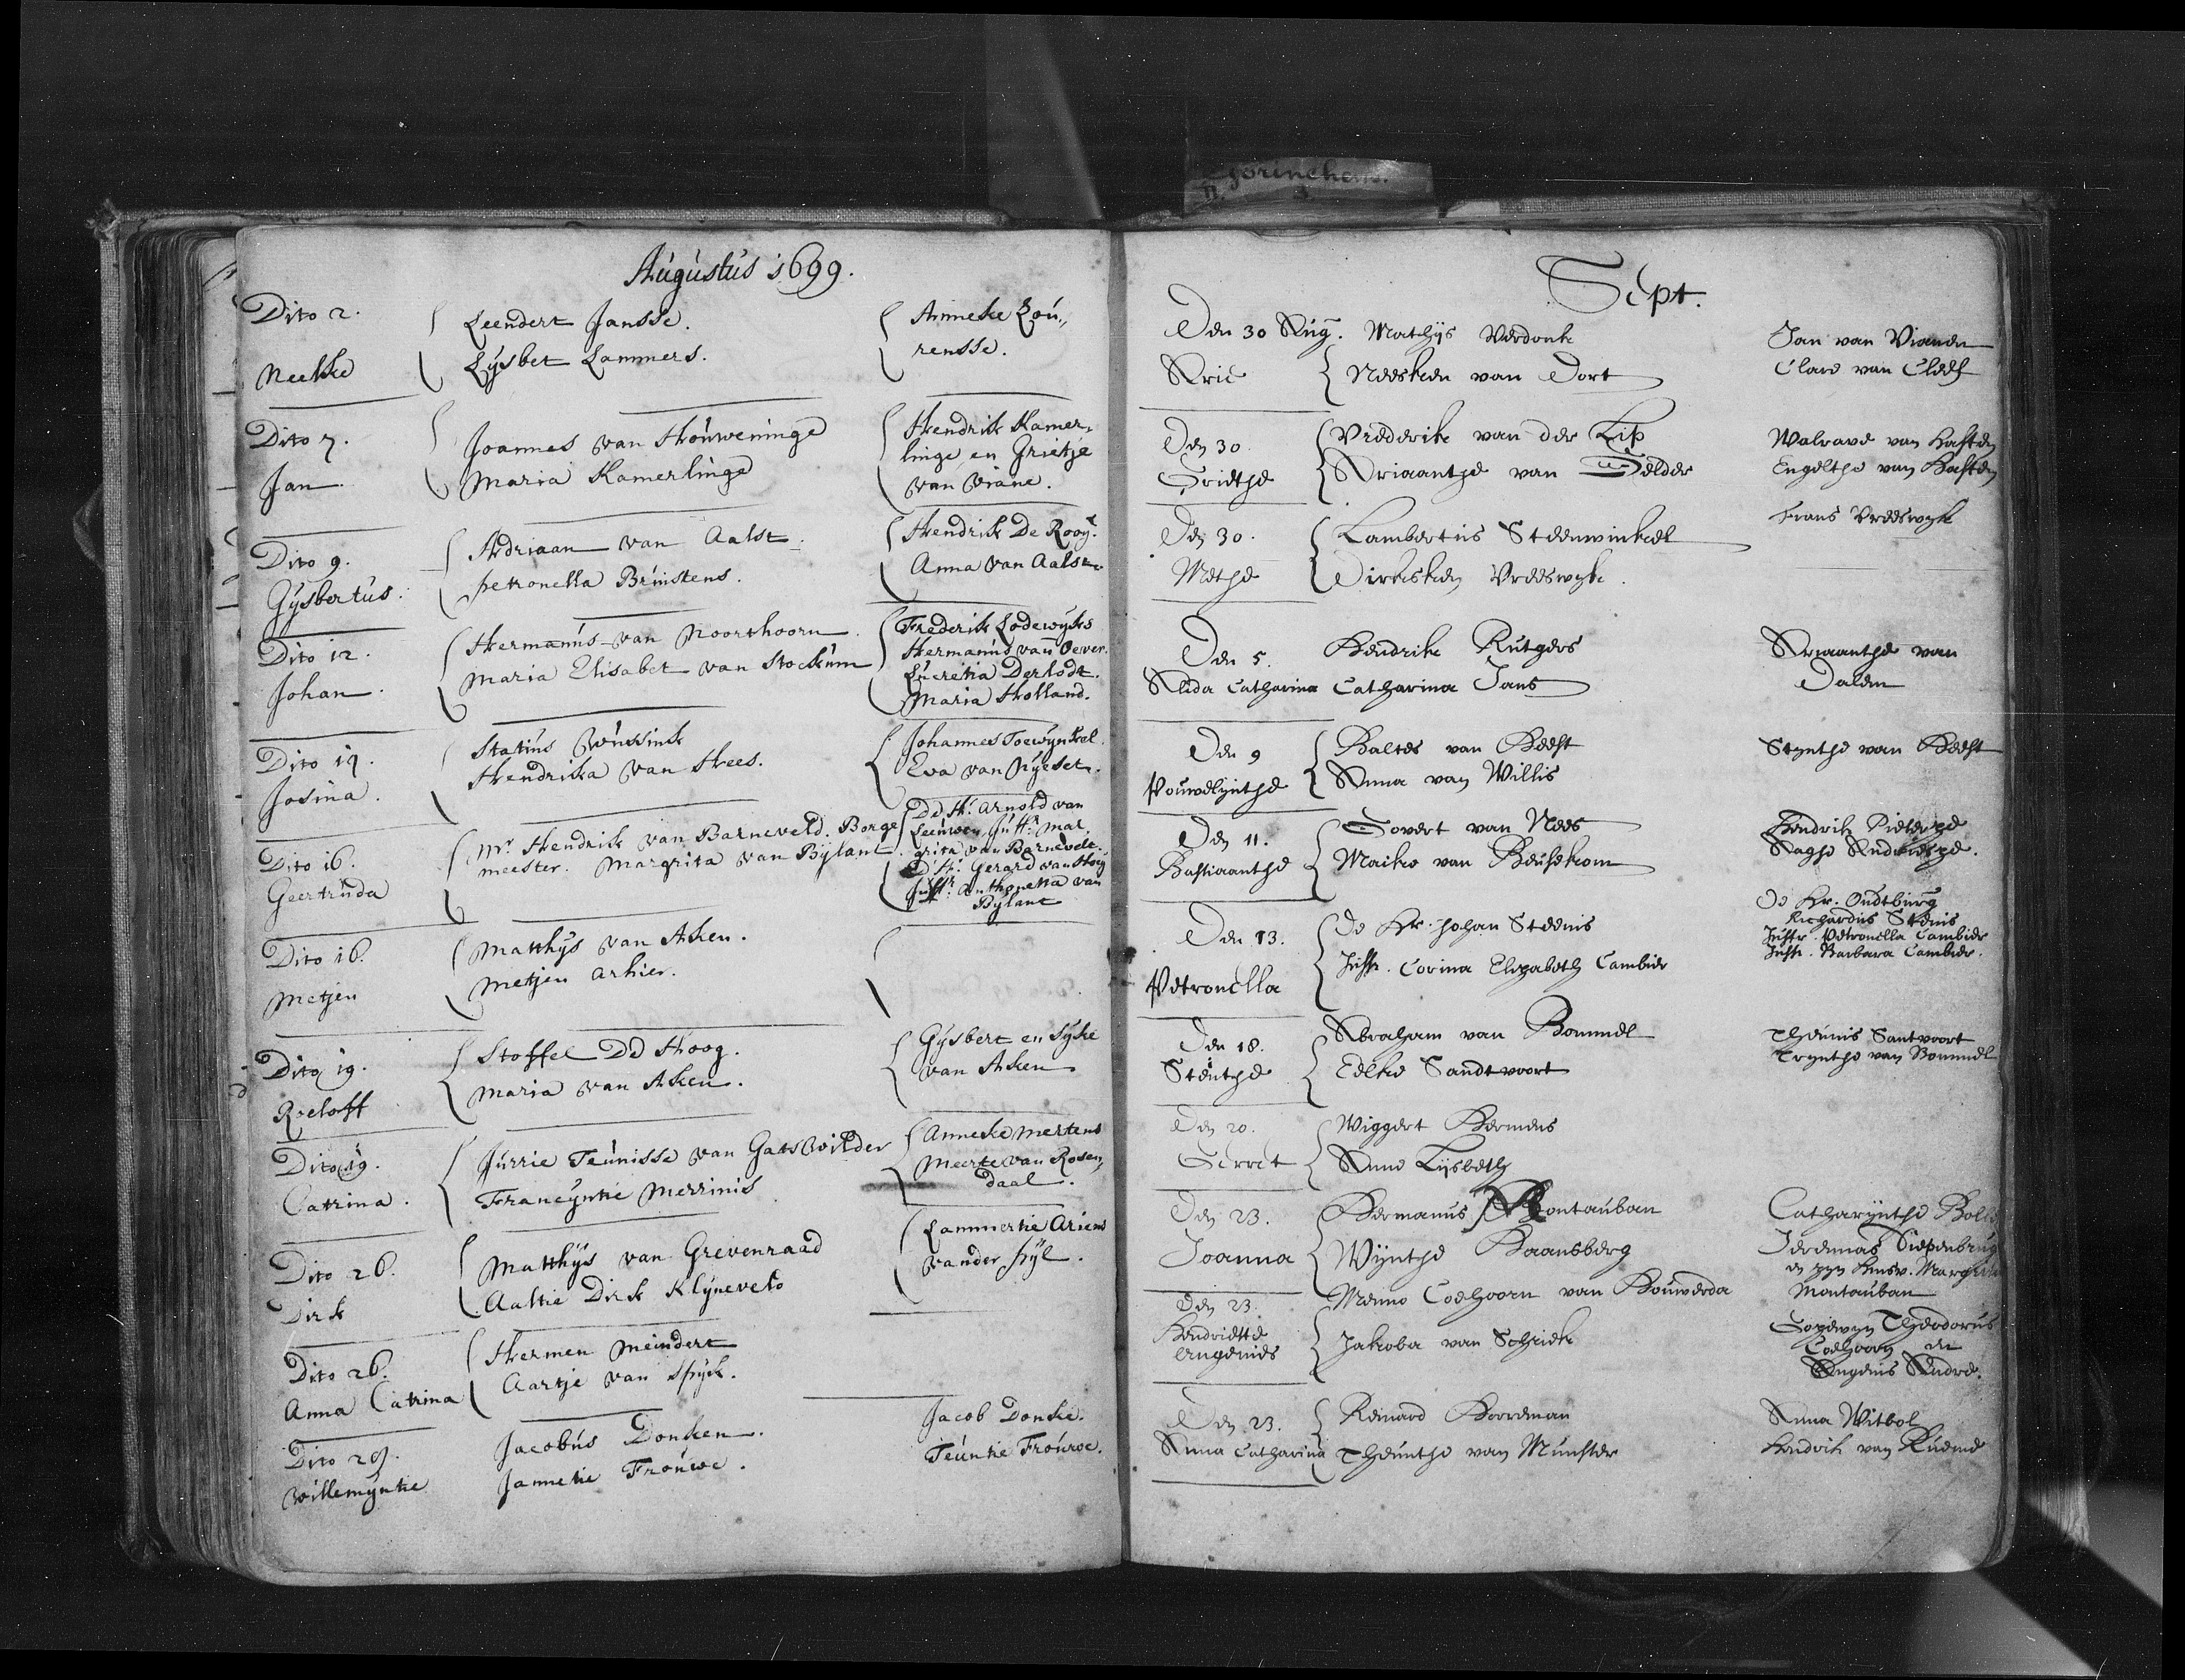 Gorinchem.
Augustus 1699.
Dito 2.
Neeltie
Leendert Jansse.
Lysbet Lammers.
Anneke Lou,,
rensse.
Dito 7.
Jan
Joannes van Houweninge
Maria Kamerlinge
Hendrik Kamer,
linge en Grietje
van Viane.
Dito 9.
Gysbertus.
Adriaan van Aalst
petronella Brinstens.
Hendrik De Rooy.
Anna van Aalst.
Dito 12.
Johan.
Hermanus van Noorthoorn
Maria Elisabet van Stockum
Frederik Lodewyks
Hermanus van Oever.
Lucretia
Maria Holland.
Dito
Josina.
Statius Wenssink
Hendrika van Hees.
Johannes Toewynkel
Eva van
Dito 16.
Geertruda
Mr Hendrik van Barneveld. Borge
meester. Margrita van Bylant.
Dd Hr. Arnold van
Leeuwen, Juffr. Mar.
grita van Barnevelt.
D Hr. Gerard van Hoey
Juffr. Anthonetta van
Bylant
Dito 16.
Metjen
Matthys van Aken.
Metjen Arhier.
Dito 19.
Roeloff
Stoffel Dd Hoog.
Maria van Aken.
Gysbert en Syke
van Aken
Dito 19.
Catrina.
Jurrie Teunisse van Gatswilder
Francyntie Merrinis
Anneke Mertens
Meerte van Rosen,
daal.
Dito 26.
Dirk
Matthys van Grevenraad
Aaltie Dirk Klyneveld
Lammertie Ariens
vander Pyl.
Dito 26.
Anna Catrina
Hermen Meindert
Aartje van Spyck.
Dito 29.
Willemyntie
Jacobus Donken.
Jannetie Frouwe.
Jacob Donke.
Teuntie Frouwe.
Sept.
Den 30 Aug. Mathys Verdonk
Arie Neesken van Dort
Jan van Vianen
Clare van Cleef
Den 30.
Griethe
Vrederik van der Lip
Ariaanthe van Gelder
Walrave van Haften
Engelthe van Haften
Den 30.
Methe
Lambertus Steenwinkel
Dirksken Vreeswyk.
Frans Vreeswyk
Den 5. Hendrik Rutgers
Alida Catharina Catharina Jans
Ariaanthe van
Dalem
Den 9
Pouwelynthe
Baltes van Beest
Anna van Willis
Stynthe van Beest
Den 11.
Bastiaanthe
Govert van Nees
Maike van Beusekom
Hendrik Pieterze
Aaghe Andrieze.
Den 13.
Petronella
De Hr. Johan Steenis
Juffr. Corina Elizabeth Cambier
De Hr. Oudtburg
Richardus Stenis
Juffr. Petronella Cambier
Juffr. Barbara Cambier.
Den 18.
Steuthe
Abraham van Bommel
Eelke Sandtvoort
Theunis Santvoort
Trynthe van Bommel
Den 20.
Gerret
Wiggert Hermens
Anne Lysbeth
Den 23.
Joanna
Hermanus Montauban
Wynthe Baansberg
Catharynthe
Jeremias
en zyn husv. Margrita
Montauban
Den 23.
Hendriette
Eugenies
Menno Coehoorn van Houwerda
Jakoba van Schriek
Gozewyn Theodorus
Coehoorn en
Eugenius Andre.
Den 23.
Anna Catharina
Reinard Boordman
Theunthe van Munster
Anna Witbol
Hendrik van